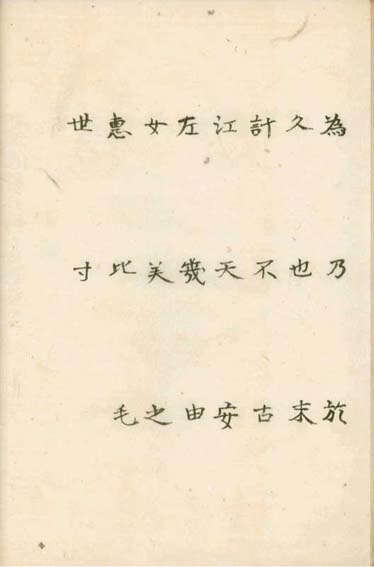 為乃於
久也末
計不古
江天安
左幾由
女美之
惠比毛
世寸